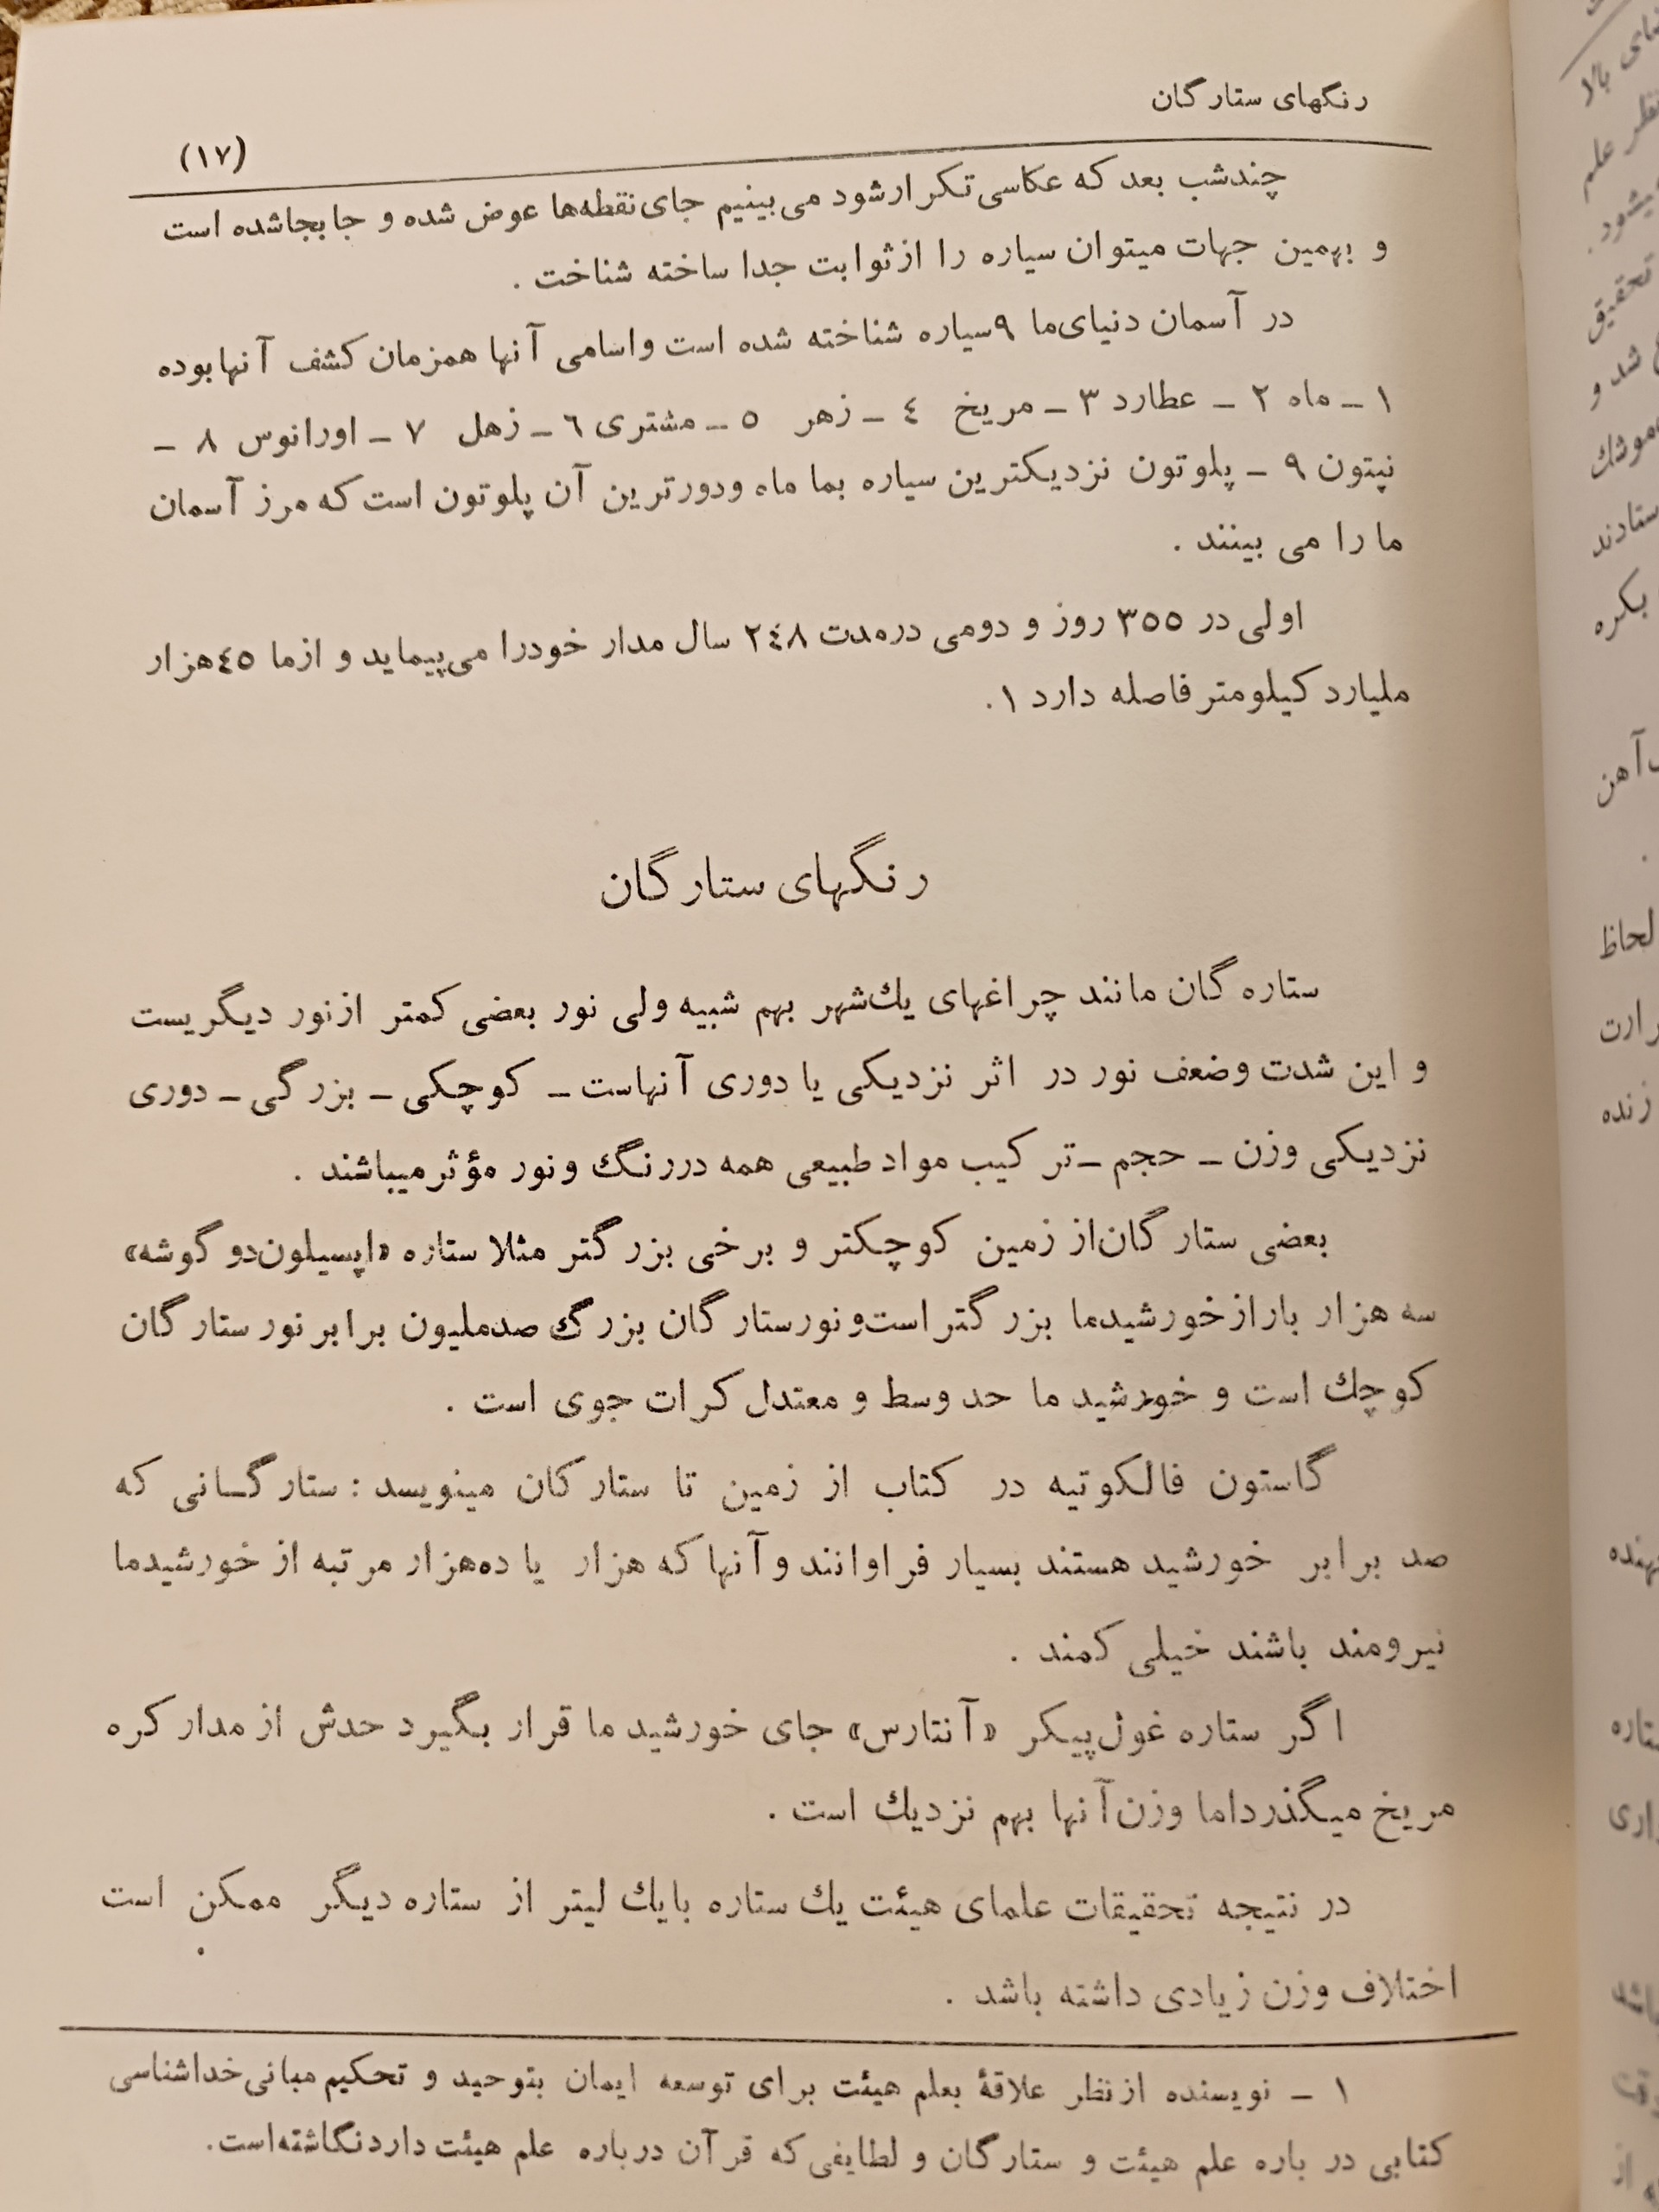 رنگهای ستارگان
(۱۷)
چندشب بعد که عکاسی تکرارشود می بینیم جای نقطه‌ها عوض شده و جابجاشده است
و بهمین جهات میتوان سیاره را ازثوابت جدا ساخته شناخت .
در آسمان دنیای‌ما ۹سیاره شناخته شده است واسامی آنها همزمان کشف آنهابوده
۱ ـ ماه ۲ ـ عطارد ۳ ـ مریخ ٤ ـ زهر ٥ ـ مشتری ٦ ـ زهل ۷ ـ اورانوس ۸ ـ
نپتون ۹ ـ پلوتون نزدیکترین سیاره بما ماه ودورترین آن پلوتون است که مرز آسمان
ما را می بینند .
اولی در ۳٥٥ روز و دومی درمدت ۲٤۸ سال مدار خودرا می‌پیماید و ازما ٤٥هزار
ملیارد کیلومتر فاصله دارد ۱.
رنگهای ستارگان
ستاره گان مانند چراغهای یك‌شهر بهم شبیه ولی نور بعضی کمتر ازنور دیگریست
و این شدت وضعف نور در اثر نزدیکی یا دوری آنهاست ـ کوچکی ـ بزرگی ـ دوری
نزدیکی وزن ـ حجم ـ ترکیب مواد طبیعی همه دررنگ ونور مؤثرمیباشند .
بعضی ستارگان‌از زمین کوچکتر و برخی بزرگتر مثلا ستاره «اپسیلون‌دو گوشه»
سه هزار باراز خورشیدما بزرگتر است‌و نورستارگان بزرگ صدملیون برابر نور ستارگان
کوچك است و خورشید ما حد وسط و معتدل کرات جوی است .
گاستون فالکوتیه در کتاب از زمین تا ستارکان مینویسد : ستارگانی که
صد برابر خورشید هستند بسیار فراوانند و آنها که هزار یا ده‌هزار مرتبه از خورشیدما
نیرومند باشند خیلی کمند .
اگر ستاره غول‌پیکر «آنتارس» جای خورشید ما قرار بگیرد حدش از مدار کره
مریخ میگذرداما وزن‌آنها بهم نزدیك است .
در نتیجه تحقیقات علمای هیئت یك ستاره بایك لیتر از ستاره دیگر ممکن است
اختلاف وزن زیادی داشته باشد .
۱ ـ نویسنده ازنظر علاقهٔ بعلم هیئت برای توسعه ایمان بتوحید و تحکیم مبانی‌خداشناسی
کتابی در باره علم هیئت و ستارگان و لطایفی که قرآن درباره علم هیئت داردنگاشته‌است.